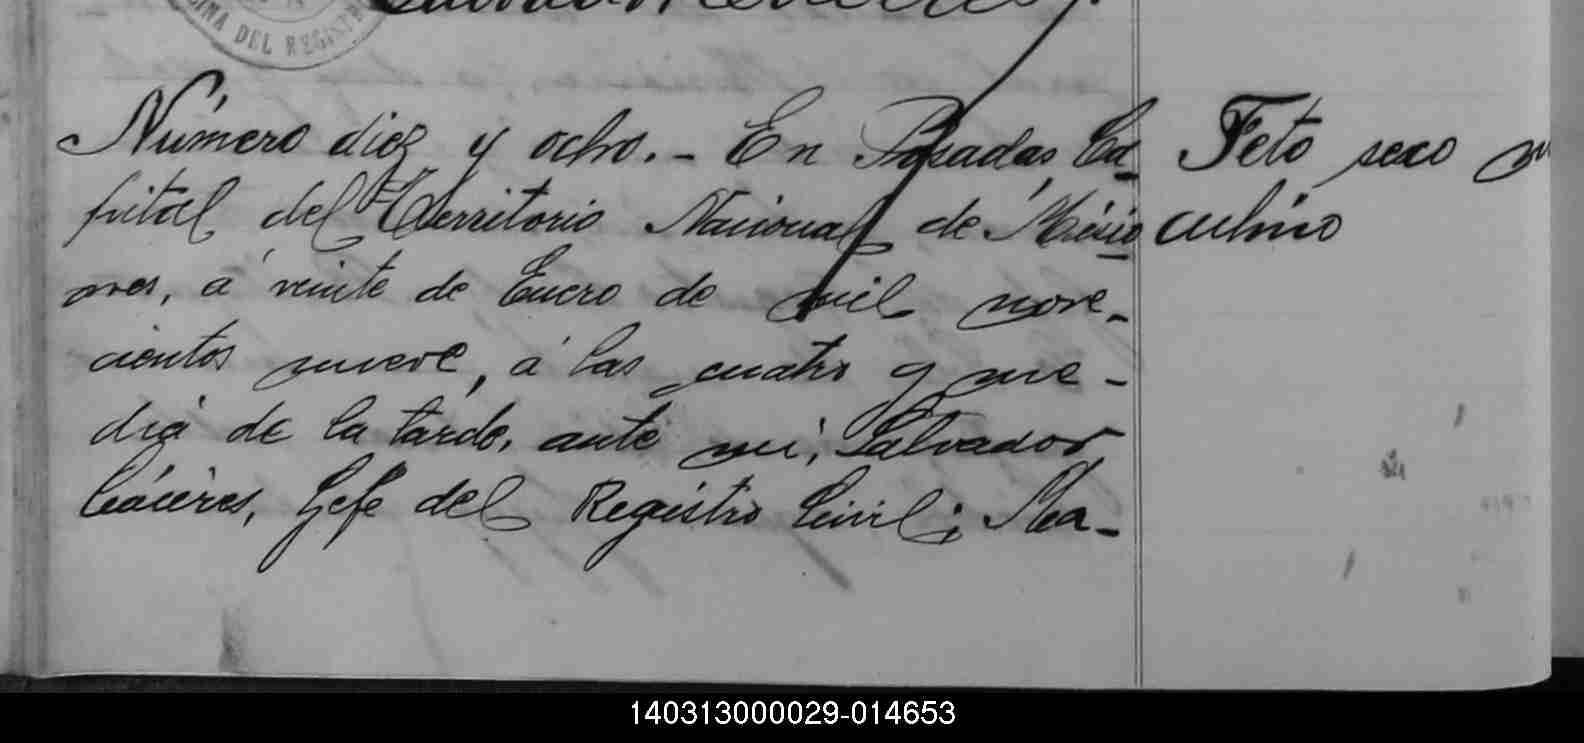 CINA DEL REGISTR
Número diez y ocho. - En Posadas, Ca
pital del Territorio Nacional de Misio
nes, á veinte de Enero de mil nove-
cientos nueve, á las cuatro y me-
dia de la tarde, ante mi, Salvador
Cáceres, Gefe del Registro Civil; Ma-
Feto sexo m
culino
140313000029-014653